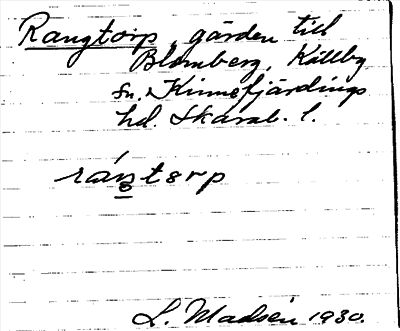 Rangtorp, gården till
Blomberg, Källby
sn. Kinnefjärdings
hd. Skarab. l.
rán̥storp
L. Madsén 1930.